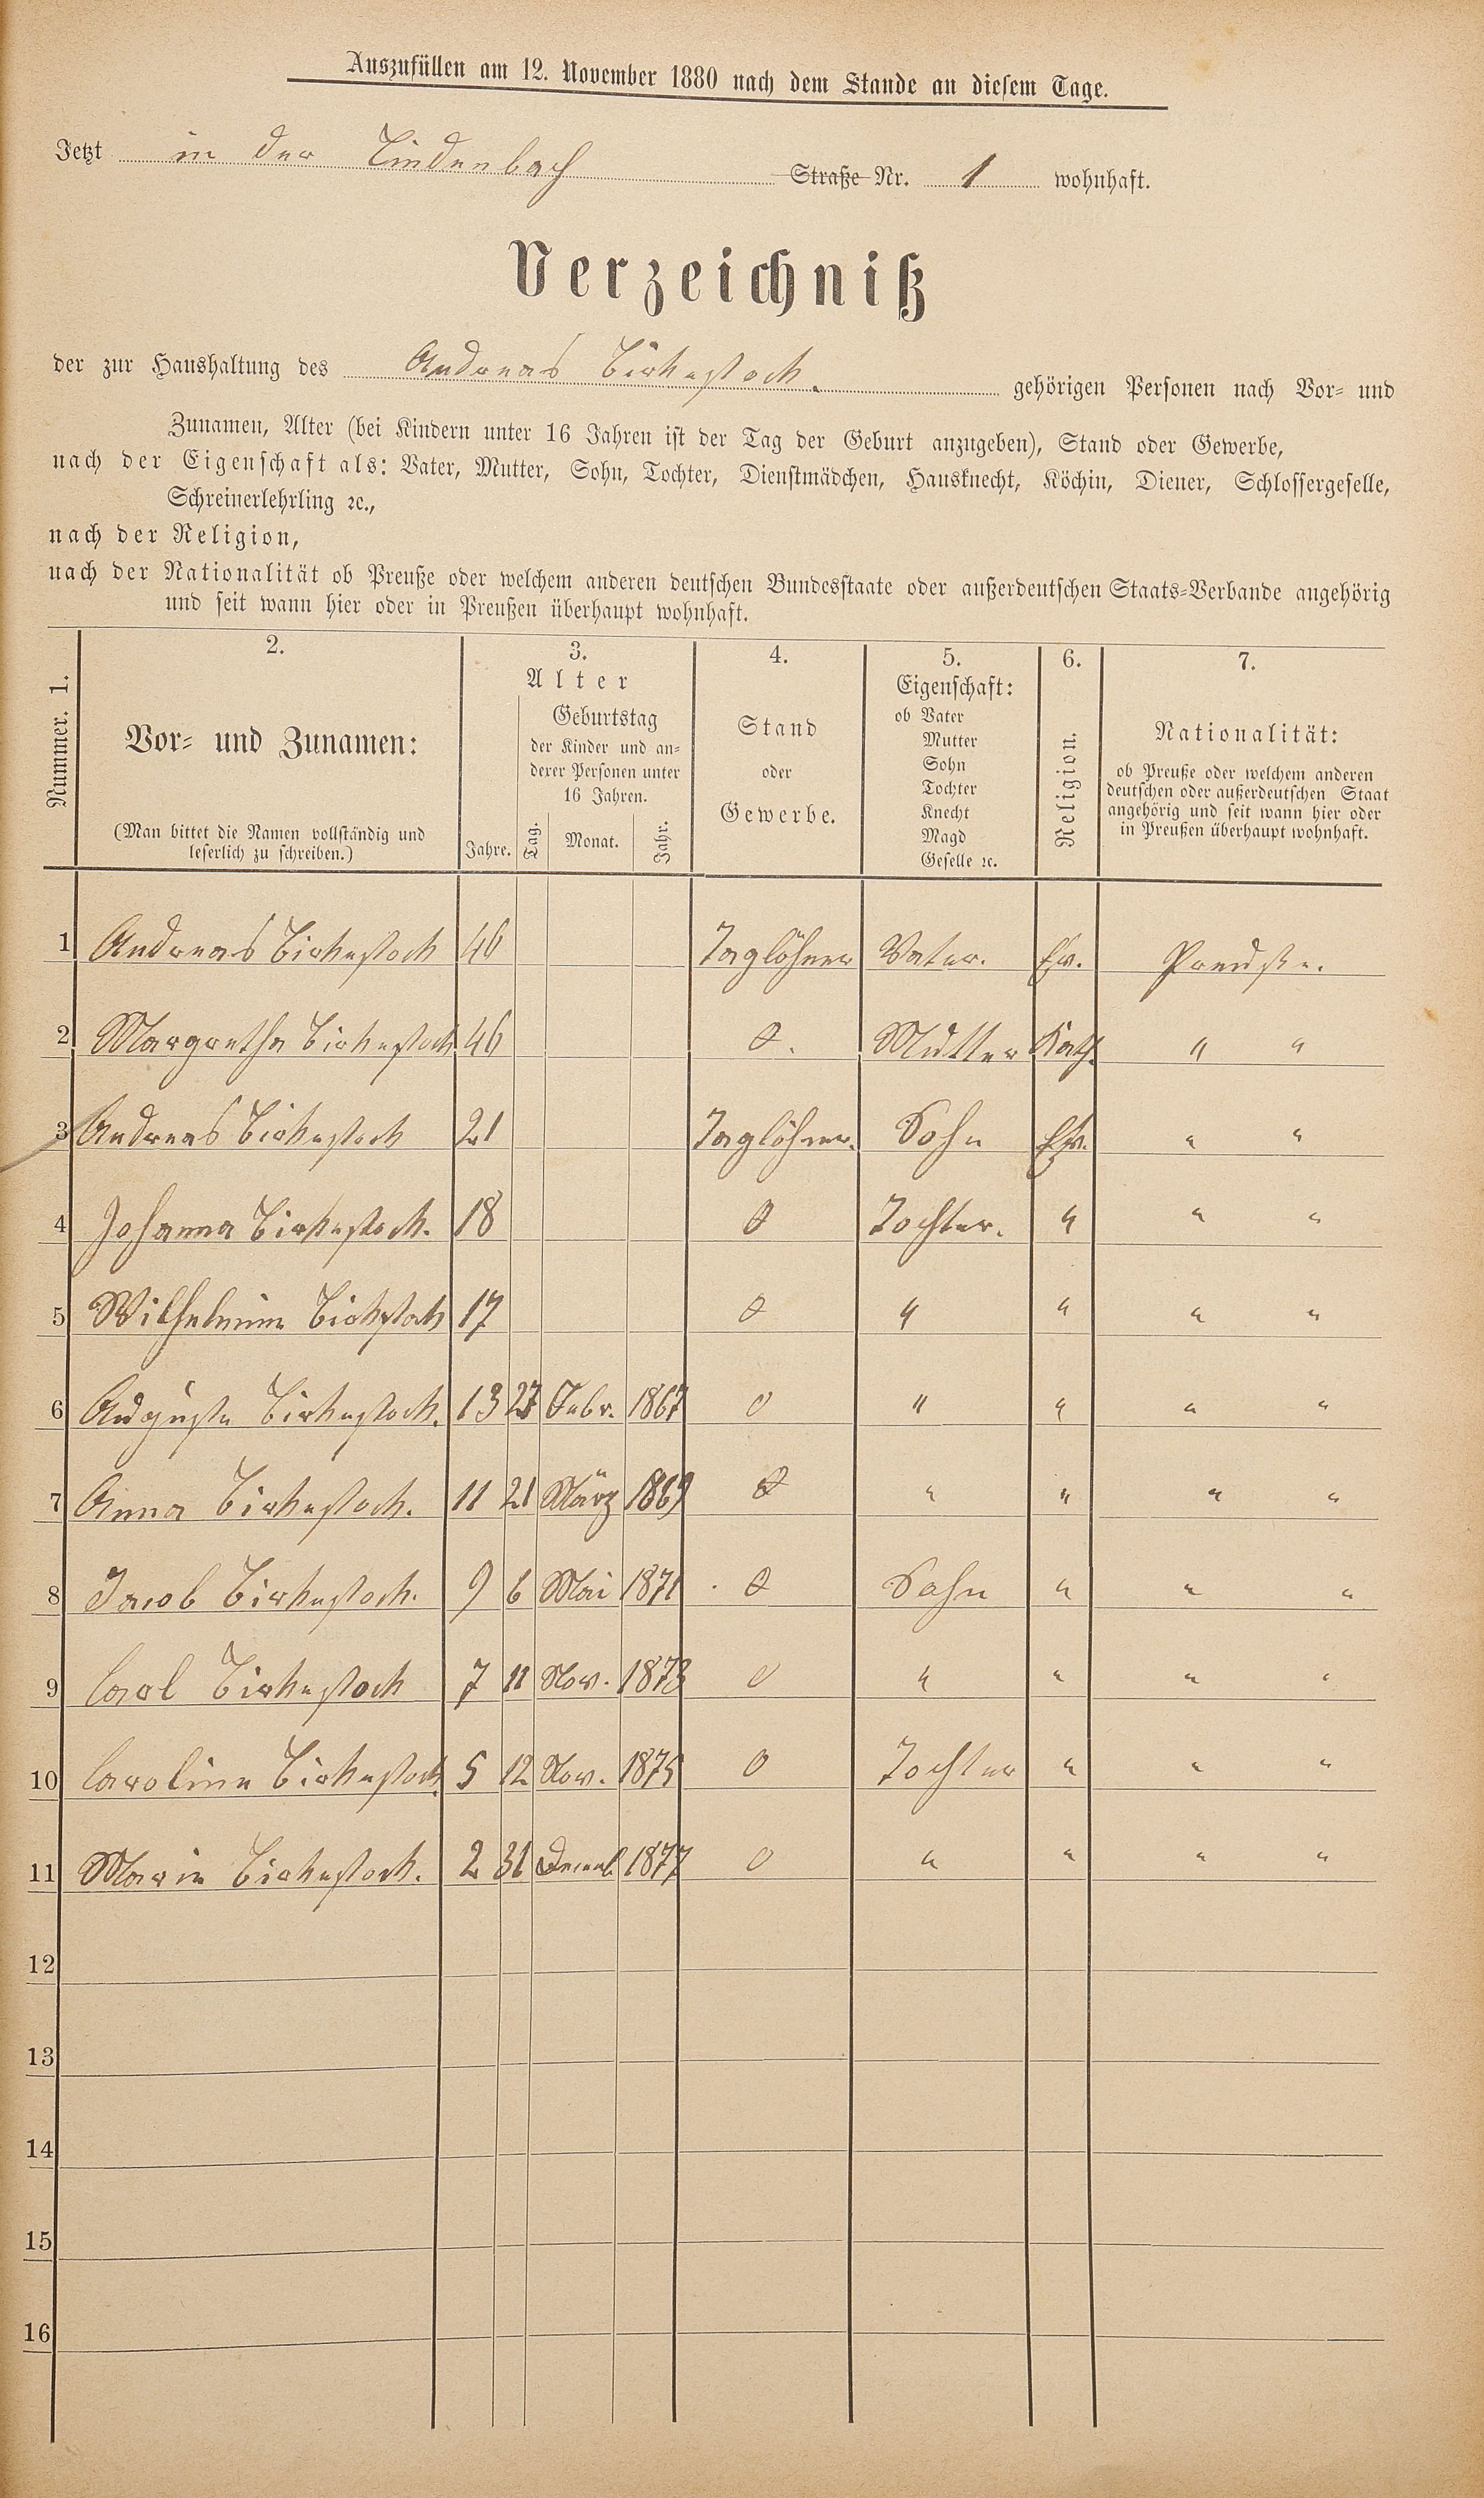 Auszufüllen am 12. November 1880 nach dem Stande an diesem Tage.
Jetzt in der Lindenbach Straße Nr. 1 wohnhaft.
Verzeichniß
der zur Haushaltung des Andreas Birkestock. gehörigen Personen nach Vor- und
Zunamen, Alter (bei Kindern unter 16 Jahren ist der Tag der Geburt anzugeben), Stand oder Gewerbe,
nach der Eigenschaft als: Vater, Mutter, Sohn, Tochter, Dienstmädchen, Hausknecht, Köchin, Diener, Schlossergeselle,
Schreinerlehrling ꝛc.,
nach der Religion,
nach der Nationalität ob Preuße oder welchem anderen deutschen Bundesstaate oder außerdeutschen Staats-Verbande angehörig
und seit wann hier oder in Preußen überhaupt wohnhaft.
Nummer. 1.
2.
Vor- und Zunamen:
(Man bittet die Namen vollständig und
leserlich zu schreiben.)
3.
Alter
Jahre.
Geburtstag
der Kinder und an-
derer Personen unter
16 Jahren.
Tag. Monat. Jahr.
4.
Stand
oder
Gewerbe.
5.
Eigenschaft:
ob Vater
Mutter
Sohn
Tochter
Knecht
Magd
Geselle ꝛc.
6.
Religion.
7.
Nationalität:
ob Preuße oder welchem anderen
deutschen oder außerdeutschen Staat
angehörig und seit wann hier oder
in Preußen überhaupt wohnhaft.
1 Andreas Birkestock 46 Taglöhner Vater. Ev. Preuße.
2 Margretha Birkestock 46 0. Mutter Kath. " "
3 Andreas Birkestock 21 Taglöhner. Sohn Ev. " "
4 Johanna Birkestock. 18 0 Tochter. " " "
5 Wilhelmine Birkstock 17 0 " " " "
6 Auguste Birkestock. 13 27 Febr. 1867 0 " " " "
7 Anna Birkestock. 11 21 März 1869 0 " " " "
8 Jacob Birkestock. 9 6 Mai 1871 0 Sohn " " "
9 Carl Birkestock 7 11 Nov. 1873 0 " " " "
10 Caroline Birkestock. 5 12 Nov. 1875 0 Tochter " " "
11 Marie Birkestock. 2 31 Decemb. 1877 0 " " " "
12
13
14
15
16